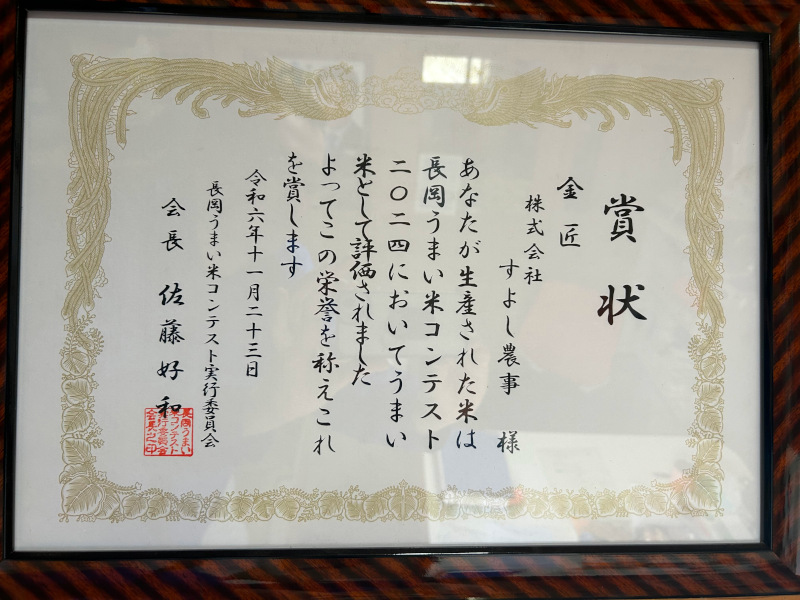 賞状
金匠
株式会社
すよし農事 様
あなたが生産された米は
長岡うまい米コンテスト
二〇二四においてうまい
米として評価されました
よってこの栄誉を称えこれ
を賞します
令和六年十一月二十三日
長岡うまい米コンテスト実行委員会
会長 佐藤好和
長岡うまい
米コンテスト
実行委員会
会長之印